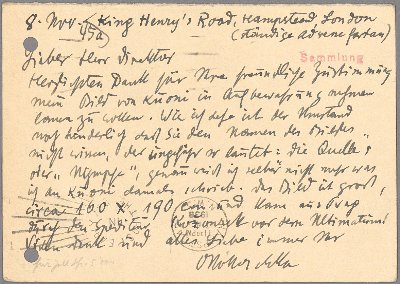 8. Nov. King Henry's Road, Hampstead, London
95a (ständige Adresse fortan)
Sammlung
Lieber Herr Direktor
Herzlichsten Dank für Ihre freundliche Zustimmung
mein Bild von Kuoni in Aufbewahrung nehmen
zu wollen. Wie ich sehe ist der Umstand
noch hinderlich daß Sie den Namen des Bildes
nicht wissen, der ungefähr so lautet: die Quelle,
oder "Nymphe", genau weiß ich selber nicht mehr was
ich an Kuoni damals schrieb. Das Bild ist groß,
circa 160 x 190 cm und kam aus Prag
durch den Spediteur vor dem Ultimatum!
Vielen Dank und alles Liebe immer Ihr
O Kokoschka